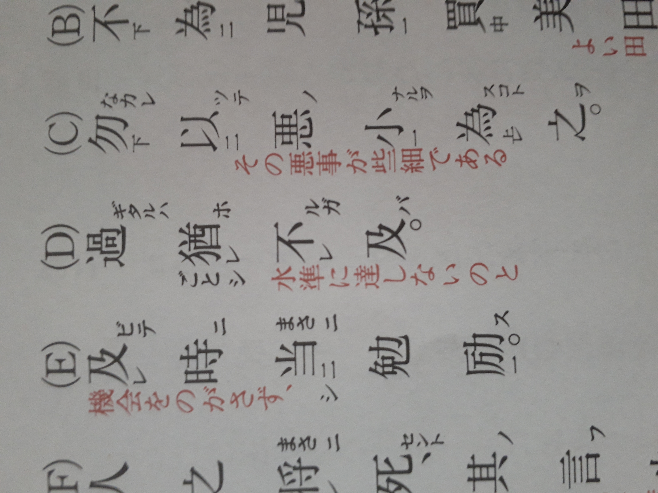 (B) 不下 為二 児 孫一 買中 美 田
よい田
(C) 勿なカレ下 以ッテ二 悪ノ 小ナルヲ一 為スコト上レ 之ヲ。
その悪事が些細である
(D) 過ギタルハ 猶ホごとシレ 不ルガレ 及バ。
水準に達しないのと
(E) 及ビテレ 時ニ 当まさニシ二 勉 励ス一。
機会をのがさず、
(F) 人 之 将まさニ 死セント、 其ノ 言フ